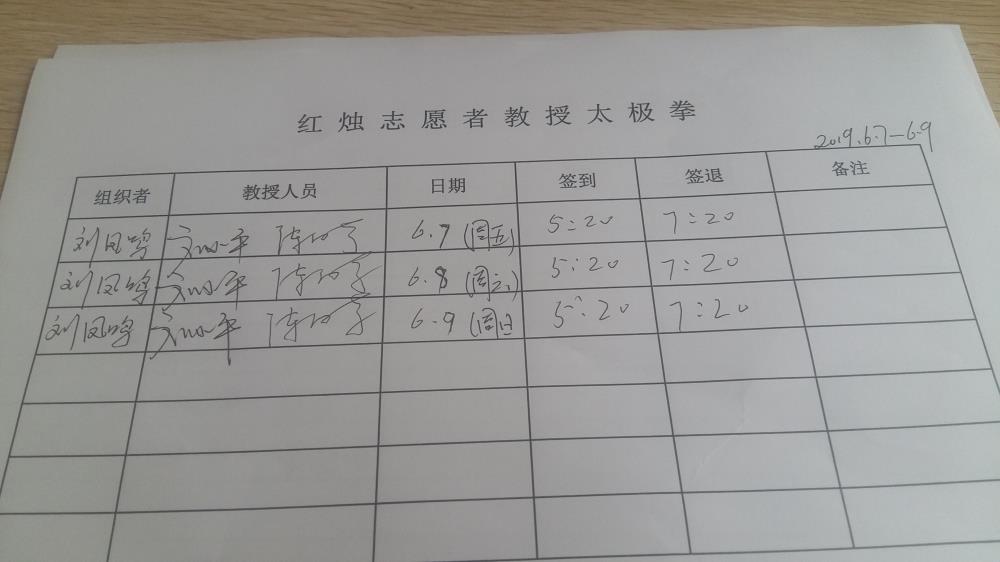 红烛志愿者教授太极拳
2019.6.7-6.9
组织者 教授人员 日期 签到 签退 备注
刘凤鸣 6.7 (周五) 5:20 7:20
刘凤鸣 6.8 (周六) 5:20 7:20
刘凤鸣 6.9 (周日 5:20 7:20